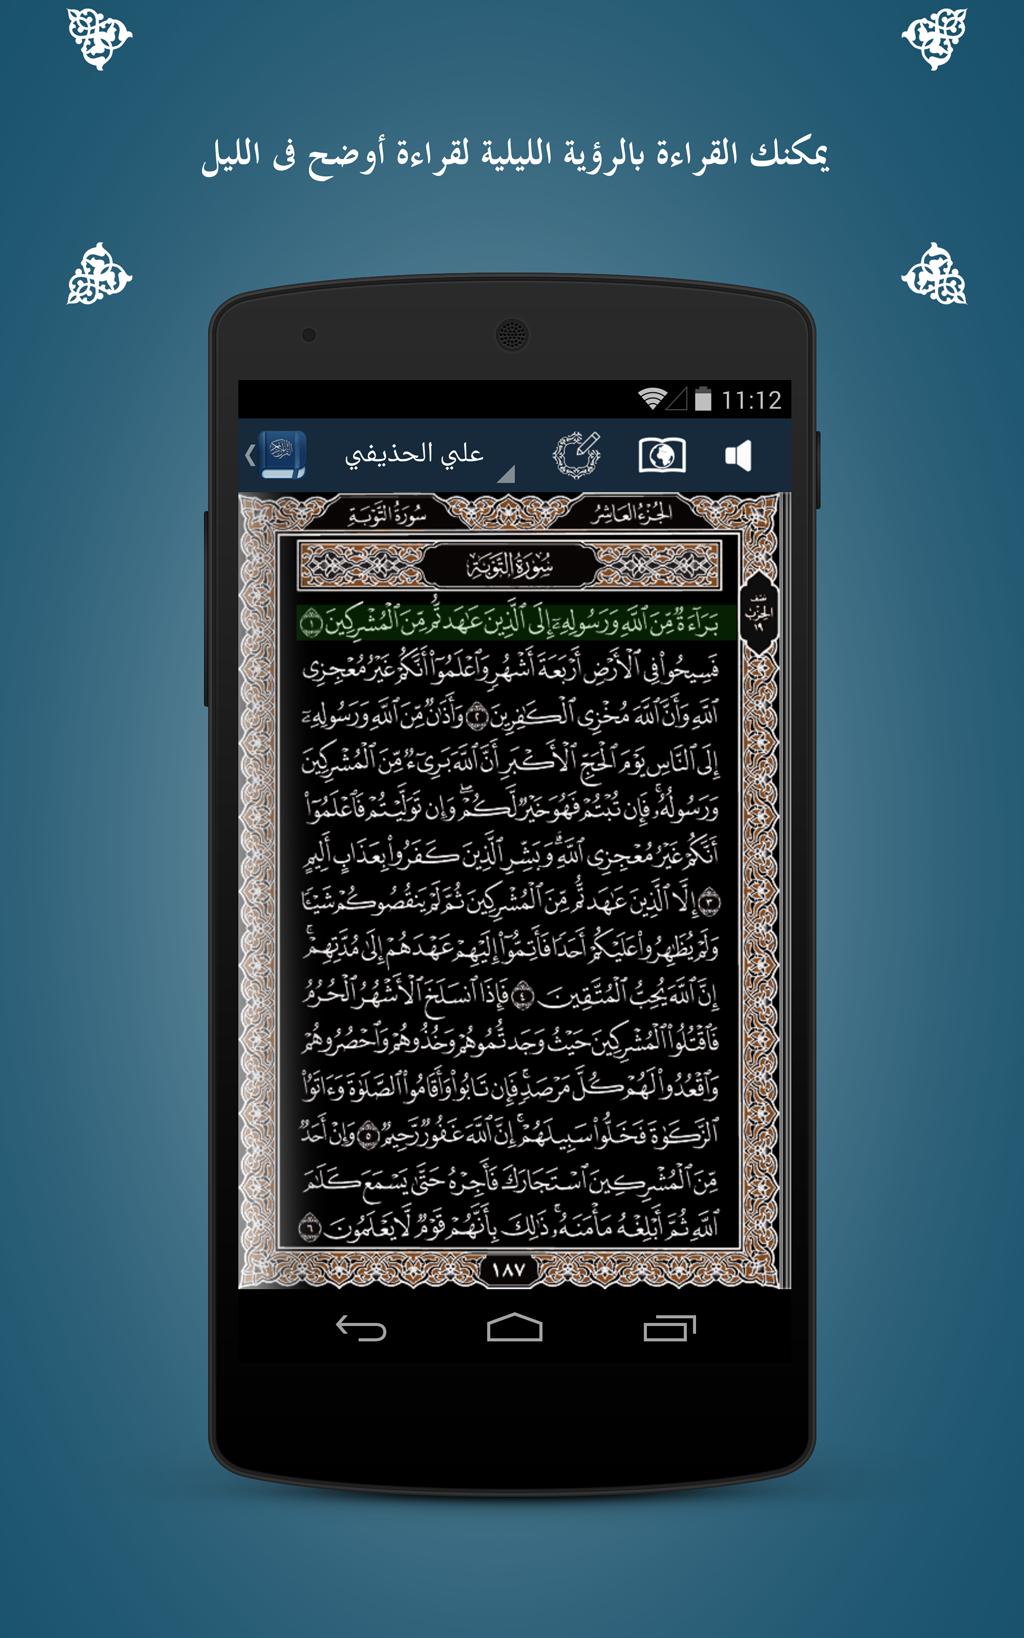 يمكنك القراءة بالرؤية الليلية لقراءة أوضح فى الليل
11:12
علي الحذيفي
سُورَةُ التَّوْبَةِ
الجُزءُ العَاشِرُ
سُورَةُ التَّوْبَة
نصف
الحِزْب
١٩
بَرَآءَةٌ مِّنَ ٱللَّهِ وَرَسُولِهِۦٓ إِلَى ٱلَّذِينَ عَٰهَدتُّم مِّنَ ٱلْمُشْرِكِينَ ١
فَسِيحُوا۟ فِى ٱلْأَرْضِ أَرْبَعَةَ أَشْهُرٍ وَٱعْلَمُوٓا۟ أَنَّكُمْ غَيْرُ مُعْجِزِى
ٱللَّهِ وَأَنَّ ٱللَّهَ مُخْزِى ٱلْكَٰفِرِينَ ٢ وَأَذَٰنٌ مِّنَ ٱللَّهِ وَرَسُولِهِۦٓ
إِلَى ٱلنَّاسِ يَوْمَ ٱلْحَجِّ ٱلْأَكْبَرِ أَنَّ ٱللَّهَ بَرِىٓءٌ مِّنَ ٱلْمُشْرِكِينَ
وَرَسُولُهُۥ فَإِن تُبْتُمْ فَهُوَ خَيْرٌ لَّكُمْ وَإِن تَوَلَّيْتُمْ فَٱعْلَمُوٓا۟
أَنَّكُمْ غَيْرُ مُعْجِزِى ٱللَّهِ وَبَشِّرِ ٱلَّذِينَ كَفَرُوا۟ بِعَذَابٍ أَلِيمٍ
٣ إِلَّا ٱلَّذِينَ عَٰهَدتُّم مِّنَ ٱلْمُشْرِكِينَ ثُمَّ لَمْ يَنقُصُوكُمْ شَيْـًٔا
وَلَمْ يُظَٰهِرُوا۟ عَلَيْكُمْ أَحَدًا فَأَتِمُّوٓا۟ إِلَيْهِمْ عَهْدَهُمْ إِلَىٰ مُدَّتِهِمْ
إِنَّ ٱللَّهَ يُحِبُّ ٱلْمُتَّقِينَ ٤ فَإِذَا ٱنسَلَخَ ٱلْأَشْهُرُ ٱلْحُرُمُ
فَٱقْتُلُوا۟ ٱلْمُشْرِكِينَ حَيْثُ وَجَدتُّمُوهُمْ وَخُذُوهُمْ وَٱحْصُرُوهُمْ
وَٱقْعُدُوا۟ لَهُمْ كُلَّ مَرْصَدٍ فَإِن تَابُوا۟ وَأَقَامُوا۟ ٱلصَّلَوٰةَ وَءَاتَوُا۟
ٱلزَّكَوٰةَ فَخَلُّوا۟ سَبِيلَهُمْ إِنَّ ٱللَّهَ غَفُورٌ رَّحِيمٌ ٥ وَإِنْ أَحَدٌ
مِّنَ ٱلْمُشْرِكِينَ ٱسْتَجَارَكَ فَأَجِرْهُ حَتَّىٰ يَسْمَعَ كَلَٰمَ
ٱللَّهِ ثُمَّ أَبْلِغْهُ مَأْمَنَهُۥ ذَٰلِكَ بِأَنَّهُمْ قَوْمٌ لَّا يَعْلَمُونَ ٦
١٨٧